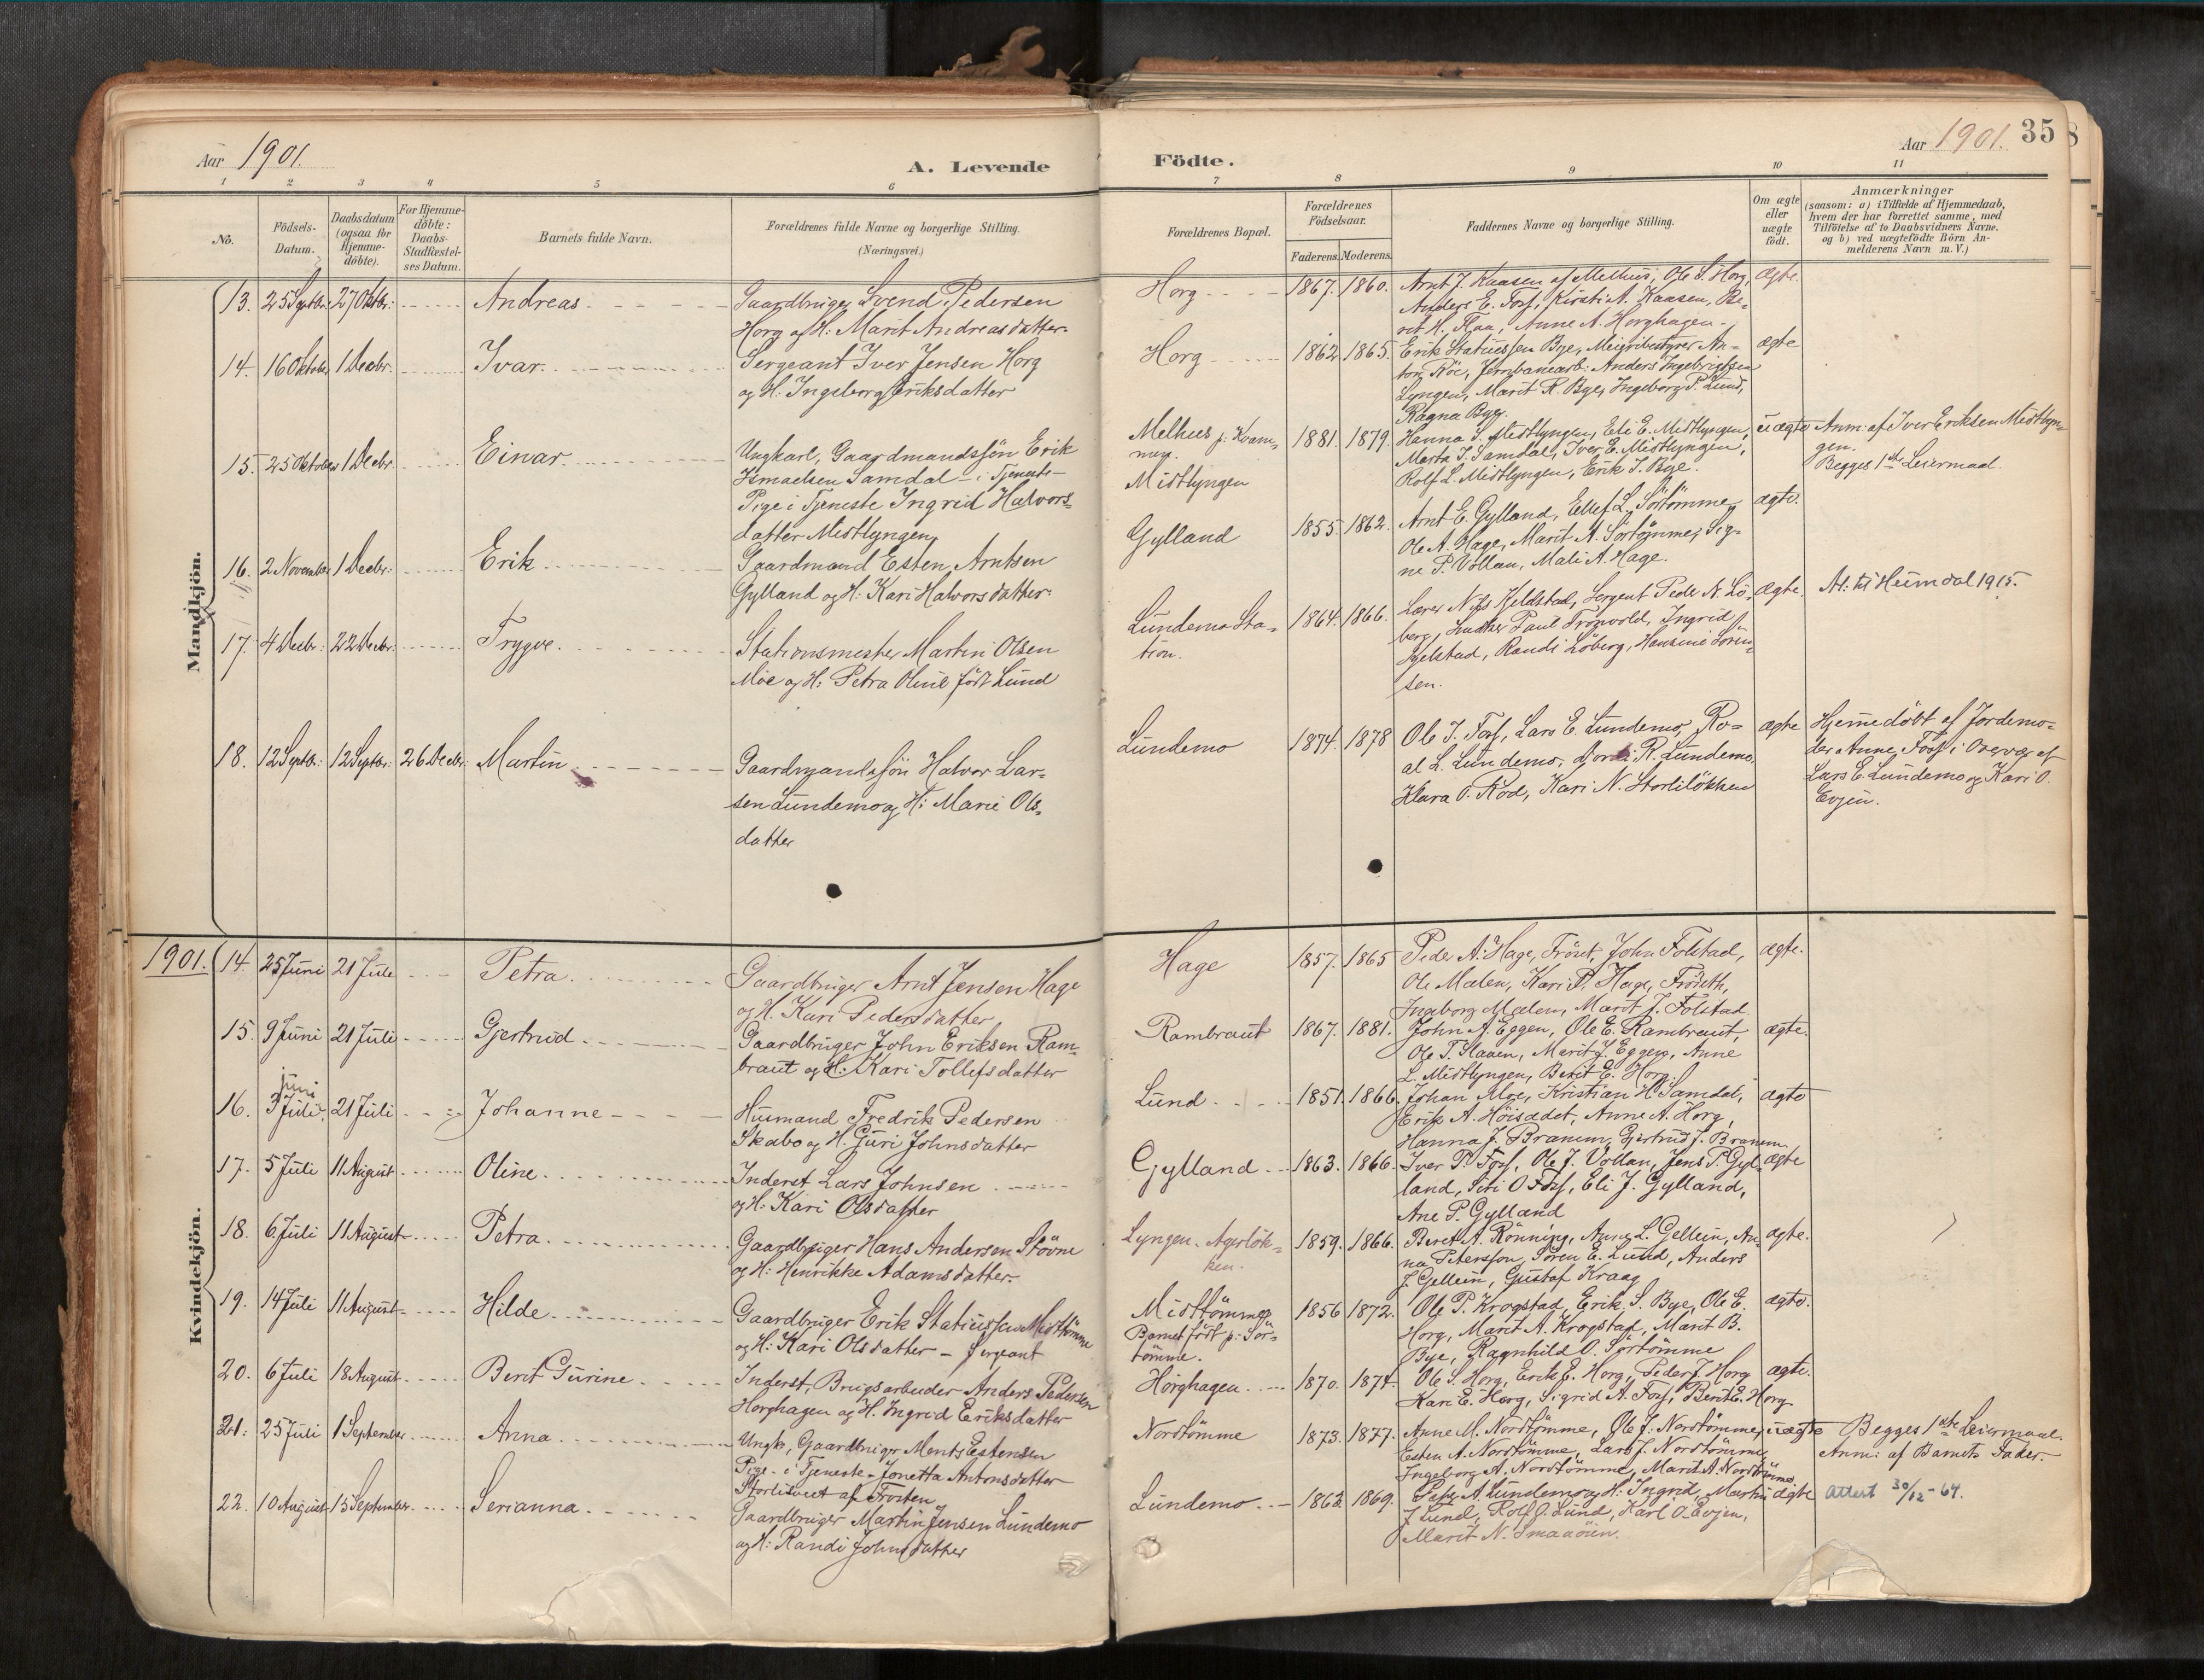 Aar 1901.
A. Levende
1 2 3 4 5 6
No.
Födsels-
Datum.
Daabsdatum
(ogsaa for
Hjemme-
döbte).
For Hjemme-
döbte:
Daabs-
Stadfæstel-
ses Datum.
Barnets fulde Navn.
Forældrenes fulde Navne og borgerlige Stilling.
(Næringsvei.)
Mandkjön.
13. 25 Septbr: 27 Oktbr: Andreas. Gaardbruger Svend Pedersen
Horg og H: Marit Andreasdatter.
14. 16 Oktober 1 Decbr. Ivar. Sergeant Iver Jensen Horg
og H: Ingeborg Eriksdatter
15. 25 Oktober 1 Decbr. Einar. Ungkarl, Gaardmandssön Erik
Ismaelsen Samdal - i Tjeneste -
Pige i Tjeneste Ingrid Halvors-
datter Midtlyngen,
16. 2 November 1 Decbr: Erik. Gaardmand Esten Arntsen
Gylland og H: Kari Halvorsdatter.
17. 4 Decbr: 22 Decbr: Trygve. Stationsmester Martin Olsen
Moe og H: Petra Oline födt Lund
18. 12 Septbr: 12 Septbr: 26 Decbr: Martin Gaardmandssön Halvor Lar-
sen Lundemo og H: Marie Ols-
datter
1901.
Kvindekjön.
14. 25 Juni 21 Juli Petra. Gaardbruger Arnt Jensen Hage
og H. Kari Pedersdatter
15. 9 Juni 21 Juli Gjertrud. Gaardbruger John Eriksen Ram-
braut og H: Kari Tollefsdatter
juni
16. 3 Juli 21 Juli Johanne Husmand Fredrik Pedersen
Skabo og H. Guri Johnsdatter
17. 5 Juli 11 August Oline. Inderst Lars Johnsen
og H: Kari Olsdatter
18. 6 Juli 11 August Petra. Gaardbruger Hans Andersen Stövne
og H: Henrikke Adamsdatter.
19. 14 Juli 11 August Hilde. Gaardbruger Erik Statiussen Midttömme
og H: Kari Olsdatter - Sergeant
20. 6 Juli 18 August Berit Gurine. Inderst, Brugsarbeider Anders Pedersen
Horghagen og H. Ingrid Eriksdatter
21. 25 Juli 1 September Anna. Ungk, Gaardbruger Ments Estensen
Pige - i Tjeneste - Jonetta Antonsdatter
af Frosten
22. 10 August 15 September Serianna. Gaardbruger Martin Jensen Lundemo
og H: Randi Johnsdatter
Födte.
Aar 1901. 35
7 8 9 10 11
Forældrenes Bopæl.
Forældrenes
Födselsaar.
Faderens. Moderens.
Faddernes Navne og borgerlige Stilling.
Om ægte
eller
uægte
födt.
Anmærkninger
(saasom: a) i Tilfælde af Hjemmedaab,
hvem der har forrettet samme, med
Tilföielse af to Daabsvidners Navne.
og b) ved uægtefödte Börn An-
melderens Navn m. V.)
Horg 1867. 1860. Arnt J. Kaasen af Melhus, Ole S. Horg, ægte.
Anders E. Foss, Kirsti A. Kaasen, Be-
rit H. Flaa, Anne A. Horghagen.
Horg 1862 1865. Erik Statiussen Bye, Meieribestyrer An- ægte
ton Röe, Jernbanearb: Anders Ingebrigtsen
Lyngen, Marit R. Bye, Ingeborg P. Lund,
Ragna Bye.
Melhus p: Kvam-
men.
Midtlyngen
1881. 1879. Hanna I. Midtlyngen, Eli E. Midtlyngen, uægte Anm: af Iver Eriksen Midtlyn-
Marta I. Samdal, Iver E. Midtlyngen, gen.
Rolf L. Midtlyngen, Erik I. Bye. Begges 1ste Leiermaal.
Gylland 1855. 1862. Arnt E. Gylland, Ellef L. Sörtömme, ægte.
Ole A. Hage, Marit A. Sörtömme, Sig-
ne P. Vollan, Mali A. Hage.
Lundemo Sta-
tion.
1864. 1866. Lærer Nils Kjelstad, Sergent Peder N. Lö- ægte. At: til Heimdal 1915.
berg, Paul Ingrid
Kjelstad, Randi Löberg, Hansine Sören-
sen.
Lundemo 1874. 1878 Ole J. Foss, Lars E. Lundemo, Ro- ægte Hjemmedöbt af Jordemo-
al L. Lundemo, R. Lundemo, der Anne Foss i Overvær af
Klara O. Rod, Kari N. Storlilökken Lars E. Lundemo og Kari O.
Evjen.
Hage 1857. 1865 Peder A. Hage, Fröset, John Folstad, ægte.
Ole Mælen, Kari P. Hage, Fröseth,
Ingeborg Mælen, Marit J. Folstad.
Rambraut 1867. 1881. John A. Eggen, Ole E. Rambraut, ægte.
Ole T. Haaen, Marit J. Eggen, Anne
L. Midtlyngen, Berit E. Horg.
Lund 1851. 1866. Johan Moe, Kristian H. Samdal, ægte
Erik A. Höisædet, Anne A. Horg,
Hanna J. Branum, Gjertrud J. Branum.
Gylland 1863. 1866. Iver P. Foss, Ole J. Vollan, Jens P. Gyl- ægte
land, Siri O Foss, Eli J. Gylland,
Ane P. Gylland
Lyngen. Agerlök-
ken.
1859. 1866. Beret A. Rönning, Anna L. Gellein, An- ægte.
na Peterson, Sören E. Lund, Anders
J. Gellein, Gustaf Kraag
Midttömme,
Barnet födt p: Sör-
tömme.
1856 1872. Ole P. Krogstad, Erik S. Bye, Ole E. ægte.
Horg, Marit A. Krogstad, Marit B.
Bye, Ragnhild O. Sörtömme
Horghagen 1870. 1874. Ole S. Horg, Erik E. Horg, Peder J. Horg ægte.
Kari E. Horg, Sigrid A. Foss, Berit E. Horg
Nordtömme 1873. 1877. Anne M. Nordtömme, Ole J. Nordtömme, uægte Begges 1ste Leiermaal.
Esten A. Nordtömme, Lars J. Nordtömme, Anm: af Barnets Fader.
Ingeborg A. Nordtömme, Marit A. Nordtömme
Lundemo 1862 1869. A. Lundemo og H: Ingrid, Martin ægte Attest 30/12-64.
J Lund, Rolf J. Lund, Karl O. Evjen,
Marit N. Smaaöien.